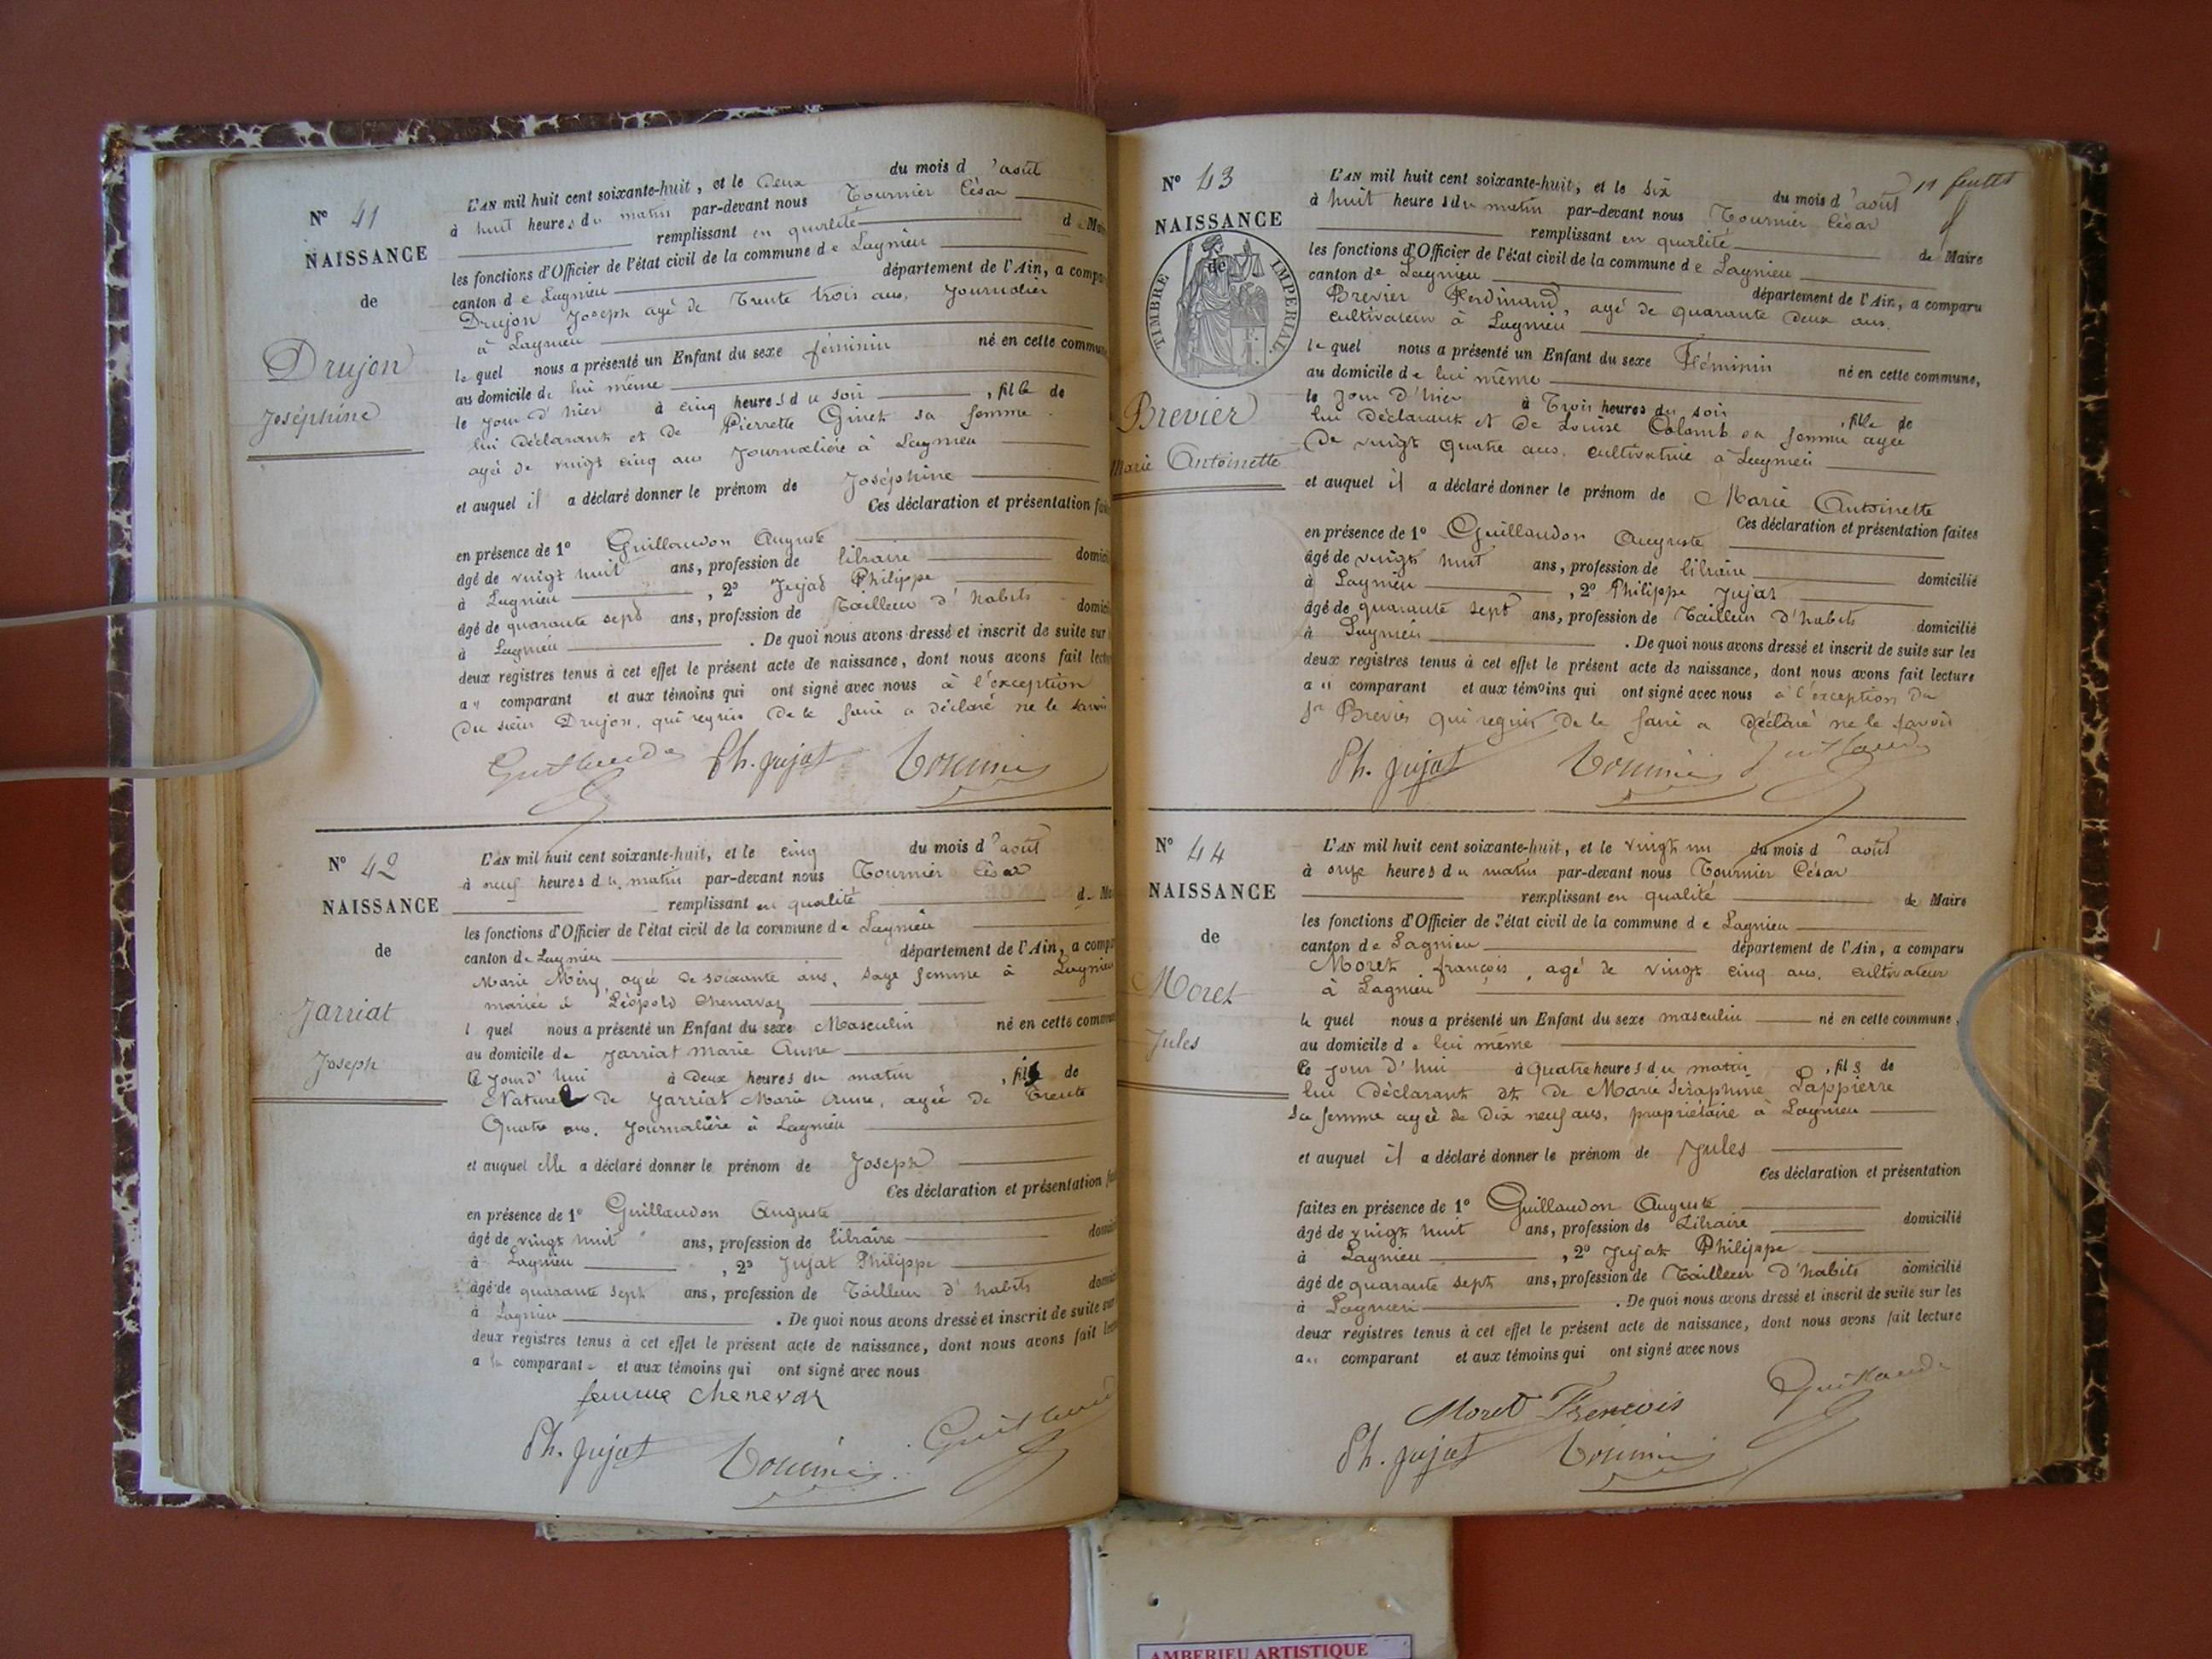 N° 41
NAISSANCE
de
Drujon
Joséphine
L'AN mil huit cent soixante-huit, et le deux du mois d'août
à huit heures du matin par-devant nous Tournier César
remplissant en qualité de
les fonctions d'Officier de l'état civil de la commune de Lagnieu
canton de Lagnieu département de l'Ain, a
Drujon Joseph agé de Trente trois ans, Journalier
à Lagnieu
le quel nous a présenté un Enfant du sexe féminin né en cette
au domicile de lui même
le jour d'hier à cinq heures du soir, fille de
lui déclarant et de Pierrette Ginet sa femme
agé de vingt cinq ans Journalière à Lagnieu
et auquel il a déclaré donner le prénom de Joséphine
Ces déclaration et présentation
en présence de 1° Guillaudon Auguste
âgé de vingt huit ans, profession de libraire
à Lagnieu, 2° Jujat Philippe
âgé de quarante sept ans, profession de Tailleur d'habits
à Lagnieu. De quoi nous avons dressé et inscrit de suite sur
deux registres tenus à cet effet le présent acte de naissance, dont nous avons fait
au comparant et aux témoins qui ont signé avec nous à l'exception
du sieur Drujon, qui requis de le faire a déclaré ne le savoir
Ph. Jujat Tournier
N° 42
NAISSANCE
de
Jarriat
Joseph
L'AN mil huit cent soixante-huit, et le cinq du mois d'août
à neuf heures du matin par-devant nous Tournier César
remplissant en qualité de
les fonctions d'Officier de l'état civil de la commune de Lagnieu
canton de Lagnieu département de l'Ain, a
Marie Méry, agée de soixante ans, sage femme à Lagnieu
mariée à Léopold Chenavaz
l quel nous a présenté un Enfant du sexe Masculin né en cette
au domicile de Jarriat Marie Anne
le jourd'hui à deux heures du matin, fils de
Naturel de Jarriat Marie Anne, agée de Trente
Quatre ans, Journalière à Lagnieu
et auquel elle a déclaré donner le prénom de Joseph
Ces déclaration et présentation
en présence de 1° Guillaudon Auguste
âgé de vingt huit ans, profession de libraire
à Lagnieu, 2° Jujat Philippe
âgé de quarante sept ans, profession de Tailleur d'habits
à Lagnieu. De quoi nous avons dressé et inscrit de suite sur
deux registres tenus à cet effet le présent acte de naissance, dont nous avons fait
a la comparante et aux témoins qui ont signé avec nous
femme chenevaz
Ph. Jujat Tournier
11 feuillet
N° 43
NAISSANCE
de
TIMBRE IMPERIAL.
Brevier
Marie Antoinette
L'AN mil huit cent soixante-huit, et le six du mois d'août
à huit heures du matin par-devant nous Tournier César
remplissant en qualité de Maire
les fonctions d'Officier de l'état civil de la commune de Lagnieu
canton de Lagnieu département de l'Ain, a comparu
Brevier Ferdinand, agé de quarante deux ans,
cultivateur à Lagnieu
le quel nous a présenté un Enfant du sexe Féminin né en cette commune,
au domicile de lui même
le jour d'hier à Trois heures du soir, fille de
lui déclarant et de Louise Colomb sa femme agée
de vingt quatre ans, cultivatrice à Lagnieu
et auquel il a déclaré donner le prénom de Marie Antoinette
Ces déclaration et présentation faites
en présence de 1° Guillaudon Auguste
âgé de vingt huit ans, profession de libraire domicilié
à Lagnieu, 2° Philippe Jujat
âgé de quarante sept ans, profession de Tailleur d'habits domicilié
à Lagnieu. De quoi nous avons dressé et inscrit de suite sur les
deux registres tenus à cet effet le présent acte de naissance, dont nous avons fait lecture
au comparant et aux témoins qui ont signé avec nous à l'exception du
sr Brevier qui requis de le faire a déclaré ne le savoir
Ph. Jujat Tournier
N° 44
NAISSANCE
de
Moret
Jules
L'AN mil huit cent soixante-huit, et le vingt un du mois d'août
à onze heures du matin par-devant nous Tournier César
remplissant en qualité de Maire
les fonctions d'Officier de l'état civil de la commune de Lagnieu
canton de Lagnieu département de l'Ain, a comparu
Moret françois, agé de vingt cinq ans, cultivateur
à Lagnieu
le quel nous a présenté un Enfant du sexe masculin né en cette commune,
au domicile de lui même
ce jour d'hui à quatre heures du matin, fils de
lui déclarant et de Marie Séraphine Lappierre
sa femme agée de dix neuf ans, propriétaire à Lagnieu
et auquel il a déclaré donner le prénom de Jules
Ces déclaration et présentation
faites en présence de 1° Guillaudon Auguste
âgé de vingt huit ans, profession de Libraire domicilié
à Lagnieu, 2° Jujat Philippe
âgé de quarante sept ans, profession de Tailleur d'habits domicilié
à Lagnieu. De quoi nous avons dressé et inscrit de suite sur les
deux registres tenus à cet effet le présent acte de naissance, dont nous avons fait lecture
au comparant et aux témoins qui ont signé avec nous
Moret Francois
Ph. Jujat Tournier
AMBERIEU ARTISTIQUE